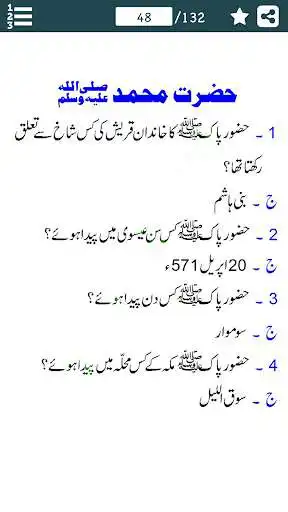 1
2
3
48 /132
حضرت محمد صلی اللہ علیہ وسلم
1 ۔ حضور پاک ﷺ کا خاندان قریش کی کس شاخ سے تعلق
رکھتا تھا؟
ج ۔ بنی ہاشم
2 ۔ حضور پاک ﷺ کس سن عیسوی میں پیدا ہوئے؟
ج ۔ 20 اپریل 571ء
3 ۔ حضور پاک ﷺ کس دن پیدا ہوئے؟
ج ۔ سوموار
4 ۔ حضور پاک ﷺ مکہ کے کس محلّہ میں پیدا ہوئے؟
ج ۔ سوق اللیل